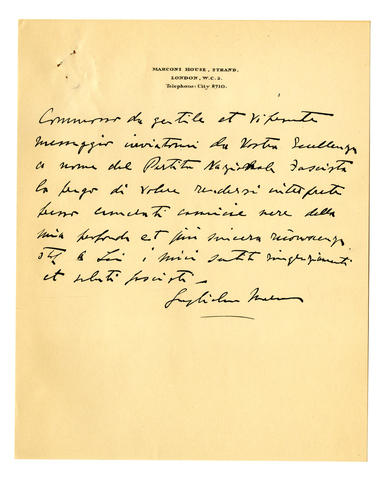 MARCONI HOUSE, STRAND,
LONDON, W.C.2.
Telephone: City 8710.
Commosso da gentile et
messaggio inviatomi da Vostra Eccellenza
a nome del Partito Nazionale Fascista
la prego di volere rendersi interprete
presso camicie nere della
mia profonda et più sincera riconoscenza
a Lei i miei sentiti ringraziamenti
et saluti fascisti
Guglielmo Marconi